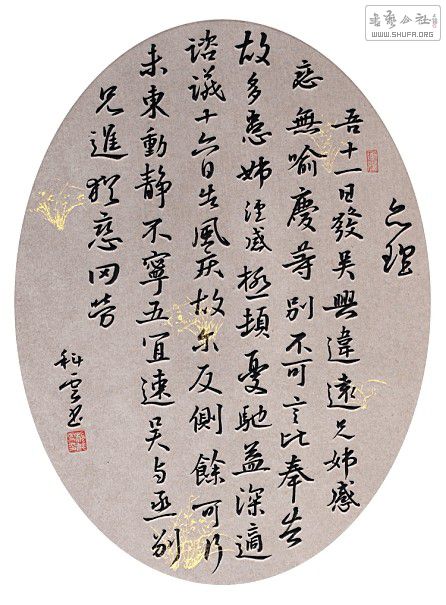 書藝公社
WWW.SHUFA.ORG
理
吾十一日發吳興違遠兄姊感
戀無喻慶等別不可言比奉告
故多患姊經感極頓憂馳益深適
諮議十六日告風疾故爾反側餘可行
未東動靜不寧五宜速吳與丞別
兄進猶戀罔勞
科雲書